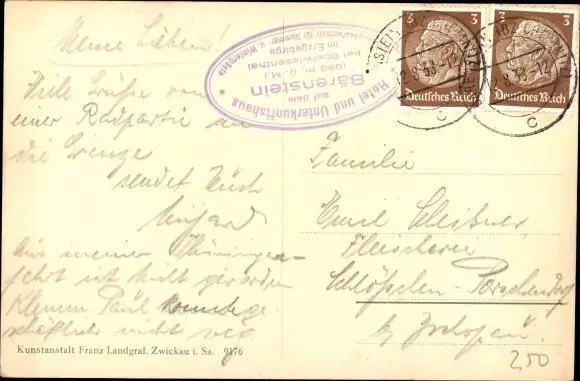 Meine Lieben!
Viele Grüße von
einer Radpartie an
die Grenze
sendet Euch
Aus meiner Thüringen-
fahrt ist nicht geworden
Klemm Paul konnte ge-
schäftlich nicht weg
Hotel und Unterkunftshaus
auf dem
Bärenstein
(898 m. ü. M.)
bei Oberwiesenthal
im Erzgebirge
für Sommer- u. Wintergäste
3 3
Deutsches Reich
3 3
Deutsches Reich
c
c
Familie
Emil
Fleischerei
Schlößchen-Porschendorf
b/ Zschopau.
2,50
Kunstanstalt Franz Landgraf. Zwickau i. Sa. 9176